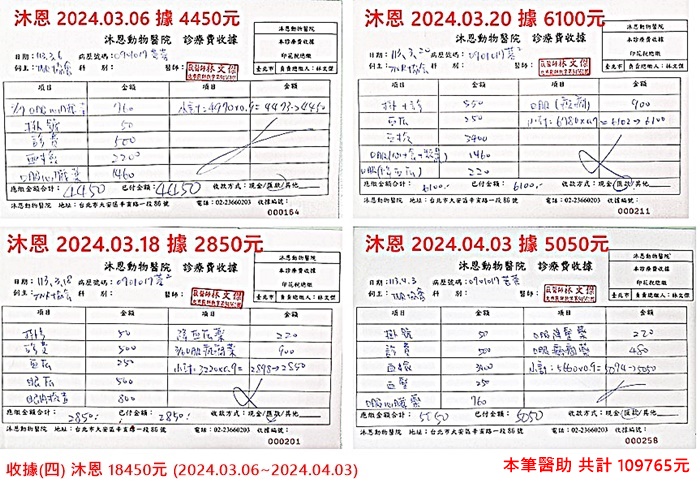 沐恩 2024.03.06 據 4450元
沐恩動物醫院 診療費收據
沐恩動物醫院
本診療費收據
印花稅總繳
日期：113.3.6 病歷號碼：0901019
飼主：TNR協會 科別： 醫師：
獸醫師 林文傑
臺北市 負責總繳人：林文傑
項目 金額 項目 金額
760 小計=4970×0.9=4473→4450
掛號 50
診費 500
血檢 2200
1460
應繳金額合計：4450 已付金額：4450 收款方式：現金/匯款/其他
沐恩動物醫院 地址：台北市大安區辛亥路一段86號 電話：02-23660203 收據編號：
000164
沐恩 2024.03.20 據 6100元
沐恩動物醫院 診療費收據
沐恩動物醫院
本診療費收據
印花稅總繳
日期：113.3.20 病歷號碼：0901019
飼主：TNR協會 科別： 醫師：
獸醫師 林文傑
臺北市 負責總繳人：林文傑
項目 金額 項目 金額
掛+診 550 900
血压 250 小計=6780×0.9=6102→6100
血檢 3400
1460
220
應繳金額合計：6100. 已付金額：6100. 收款方式：現金/匯款/其他
沐恩動物醫院 地址：台北市大安區辛亥路一段86號 電話：02-23660203 收據編號：
000211
沐恩 2024.03.18 據 2850元
沐恩動物醫院 診療費收據
沐恩動物醫院
本診療費收據
印花稅總繳
日期：113.3.18 病歷號碼：0901019
飼主：TNR協會 科別： 醫師：
獸醫師 林文傑
臺北市 負責總繳人：林文傑
項目 金額 項目 金額
掛號 50 降血压藥 220
診費 500 900
血压 250 小計=3220×0.9=2898→2850
眼压 500
800
應繳金額合計：2850. 已付金額：2850. 收款方式：現金/匯款/其他
沐恩動物醫院 地址：台北市大安區辛亥路一段86號 電話：02-23660203 收據編號：
000201
沐恩 2024.04.03 據 5050元
沐恩動物醫院 診療費收據
沐恩動物醫院
本診療費收據
印花稅總繳
日期：113.4.3 病歷號碼：0901019
飼主：TNR協會 科別： 醫師：
獸醫師 林文傑
臺北市 負責總繳人：林文傑
項目 金額 項目 金額
掛號 50 220
診費 500 480
血檢 3400 小計=5660×0.9=5094→5050
血压 250
760
應繳金額合計：5050 已付金額：5050 收款方式：現金/匯款/其他
沐恩動物醫院 地址：台北市大安區辛亥路一段86號 電話：02-23660203 收據編號：
000258
收據(四) 沐恩 18450元 (2024.03.06~2024.04.03)
本筆醫助 共計 109765元